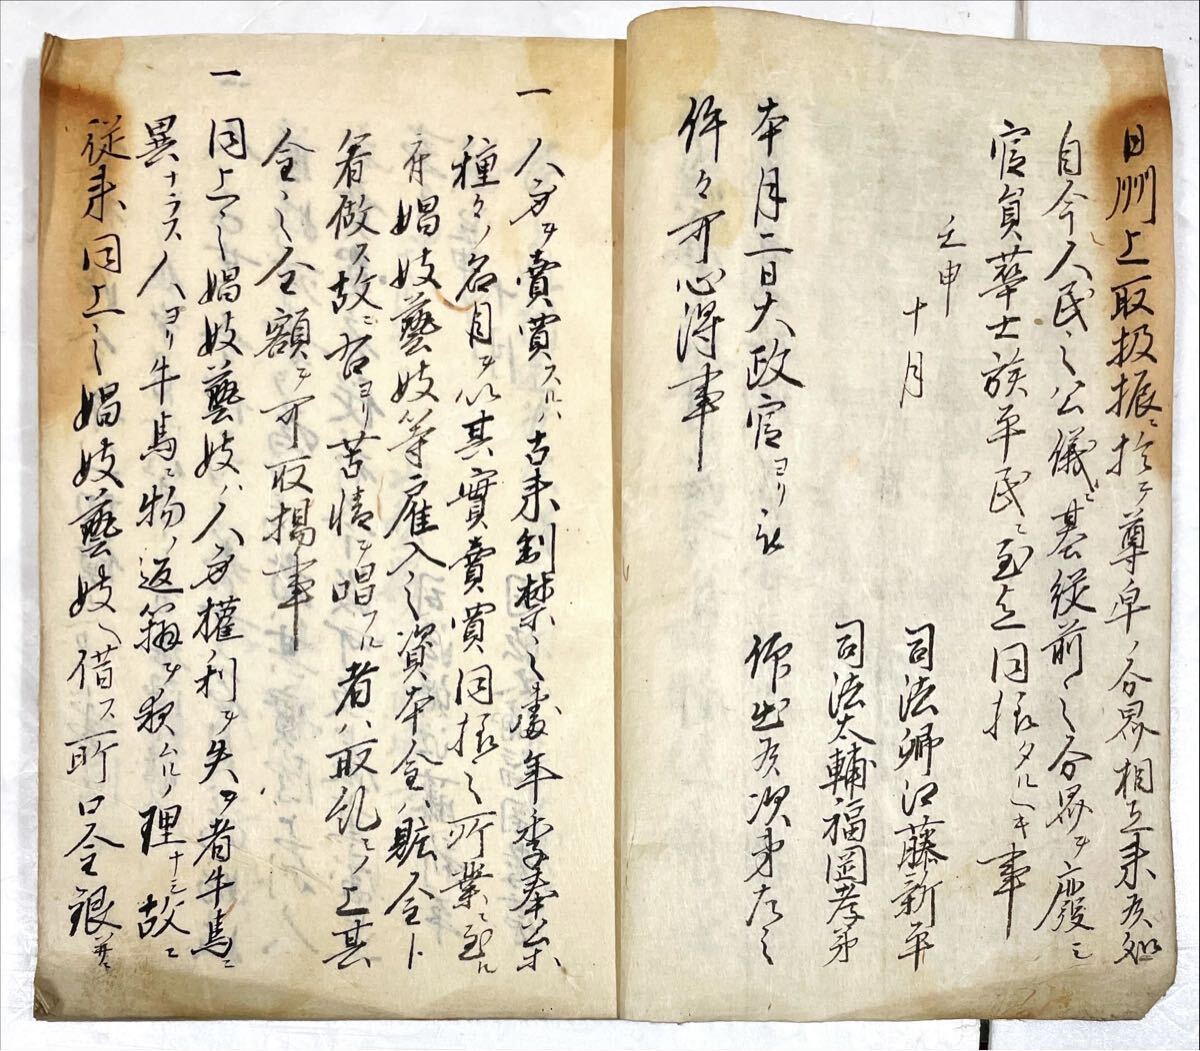 日州上取扱振ニ於テ尊卑ノ分界相立来候処
自今人民之公儀ニ基従前之分界ヲ廃シ
官員華士族平民ニ至迄同様タルヘキ事
壬申
十月
司法卿江藤新平
司法大輔福岡孝弟
本月二日大政官ヨリ被 仰出候次第左之
件々可心得事
一
人身ヲ賣買スルハ古来制禁之處年季奉公等
種々ノ名目ヲ以其實賣買同様之所業ニ至ルニ
付娼妓藝妓等雇入之資本金ハ賍金ト
看做ス故ニ右ヨリ苦情ヲ唱フル者ハ取糺ノ上其
金之全額ヲ可取揚事
一
同上之娼妓藝妓ハ人身權利ヲ失フ者牛馬ニ
異ナラス人ヨリ牛馬ニ物ノ返辨ヲ求ムルノ理ナシ故ニ
従来同上之娼妓藝妓ヘ借ス所ロ金銀並ニ